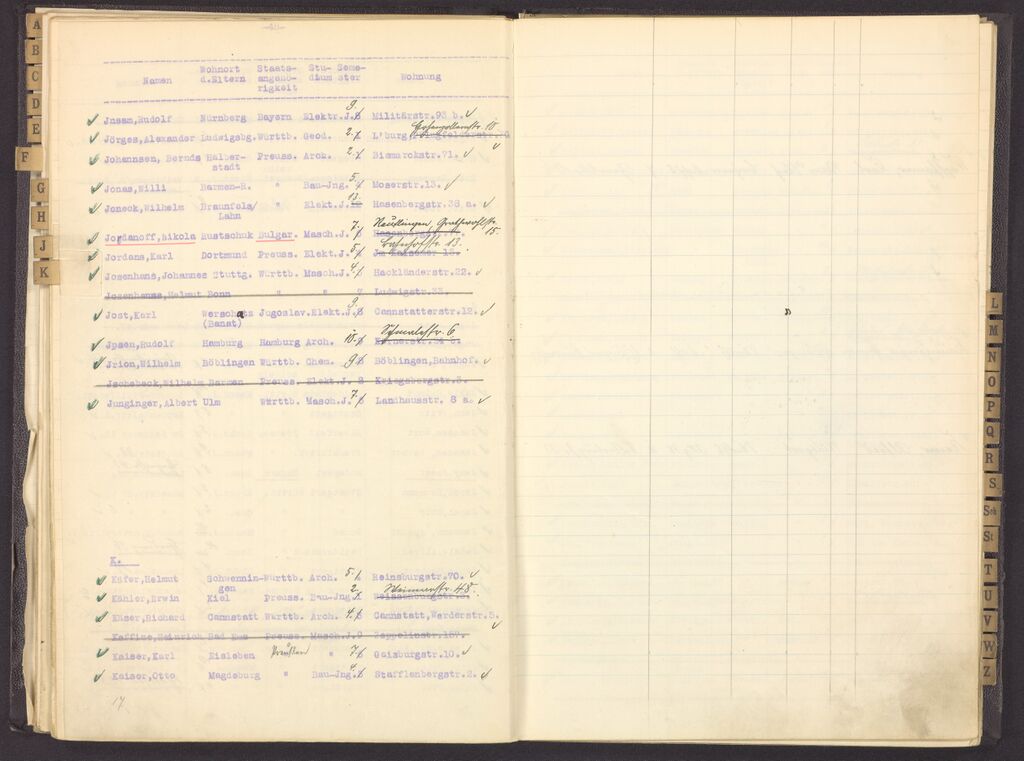 A
B
C
D
E
F
G
H
J
K
Namen Wohnort d.Eltern Staats-angehö-rigkeit Stu-dium Seme-ster Wohnung
Jnsam,Rudolf Nürnberg Bayern Elektr.J. 9. Militärstr.93 b.
Jörges,Alexander Ludwigsbg. Württb. Geod. 2. L'burg,
Johannsen, Bernds Halber-stadt Preuss. Arch. 2. Bismarckstr.71.
Jonas,Willi Barmen-R. " Bau-Jng. 5. Moserstr.13.
Joneck,Wilhelm Braunfels/Lahn " Elekt.J. 13. Hasenbergstr.38 a.
Jordanoff,Nikola Rustschuk Bulgar. Masch.J. 7. Grathwohlstr. 15.
Jordans,Karl Dortmund Preuss. Elekt.J. 5. Bahnhofstr. 13.
Josenhans,Johannes Stuttg. Württb. Masch.J. 4. Hackländerstr.22.
Josenhanss,Helmut Bonn " " 7 Ludwigstr.33.
Jost,Karl Werschatz (Banat) Jugoslav. Elekt.J. 9. Cannstatterstr.12.
Jpsen,Rudolf Hamburg Hamburg Arch. 10. Schwabstr. 6
Jrion,Wilhelm Böblingen Württb. Chem. 9. Böblingen,Bahnhof.
Jschebeck,Wilhelm Barmen Preuss. Elekt.J. 2 Kriegsbergstr.5.
Junginger,Albert Ulm Württb. Masch.J. 7. Landhausstr. 8 a.
K.
Käfer,Helmut Schwennin-gen Württb. Arch. 5. Reinsburgstr.70.
Kähler,Erwin Kiel Preuss. Bau-Jng. 2. Weimarstr. 48.
Käser,Richard Cannstatt Württb. Arch. 4. Cannstatt,Werderstr.5.
Kaffine,Heinrich Bad Ems Preuss. Masch.J. 9 Zeppelinstr.157.
Kaiser,Karl Eisleben Preußen " 7. Gaisburgstr.10.
Kaiser,Otto Magdeburg " Bau-Jng. 4. Stafflenbergstr.2.
17
L
M
N
O
P
Q
R
S
Sch
St
T
U
V
W
Z